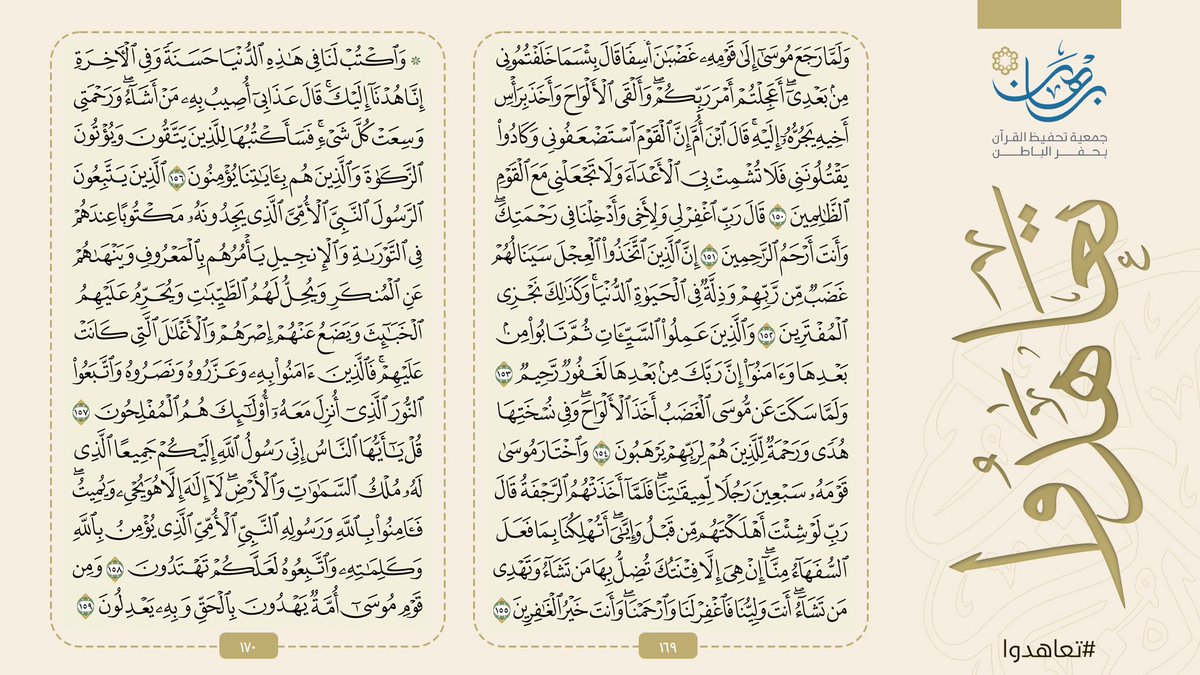 وَلَمَّا رَجَعَ مُوسَىٰٓ إِلَىٰ قَوْمِهِۦ غَضْبَٰنَ أَسِفًا قَالَ بِئْسَمَا خَلَفْتُمُونِى
مِنۢ بَعْدِىٓۖ أَعَجِلْتُمْ أَمْرَ رَبِّكُمْۖ وَأَلْقَى ٱلْأَلْوَاحَ وَأَخَذَ بِرَأْسِ
أَخِيهِ يَجُرُّهُۥٓ إِلَيْهِۚ قَالَ ٱبْنَ أُمَّ إِنَّ ٱلْقَوْمَ ٱسْتَضْعَفُونِى وَكَادُوا۟
يَقْتُلُونَنِى فَلَا تُشْمِتْ بِىَ ٱلْأَعْدَآءَ وَلَا تَجْعَلْنِى مَعَ ٱلْقَوْمِ
ٱلظَّٰلِمِينَ ١٥٠ قَالَ رَبِّ ٱغْفِرْ لِى وَلِأَخِى وَأَدْخِلْنَا فِى رَحْمَتِكَۖ
وَأَنتَ أَرْحَمُ ٱلرَّٰحِمِينَ ١٥١ إِنَّ ٱلَّذِينَ ٱتَّخَذُوا۟ ٱلْعِجْلَ سَيَنَالُهُمْ
غَضَبٌ مِّن رَّبِّهِمْ وَذِلَّةٌ فِى ٱلْحَيَوٰةِ ٱلدُّنْيَاۚ وَكَذَٰلِكَ نَجْزِى
ٱلْمُفْتَرِينَ ١٥٢ وَٱلَّذِينَ عَمِلُوا۟ ٱلسَّيِّـَٔاتِ ثُمَّ تَابُوا۟ مِنۢ
بَعْدِهَا وَءَامَنُوٓا۟ إِنَّ رَبَّكَ مِنۢ بَعْدِهَا لَغَفُورٌ رَّحِيمٌ ١٥٣
وَلَمَّا سَكَتَ عَن مُّوسَى ٱلْغَضَبُ أَخَذَ ٱلْأَلْوَاحَۖ وَفِى نُسْخَتِهَا
هُدًى وَرَحْمَةٌ لِّلَّذِينَ هُمْ لِرَبِّهِمْ يَرْهَبُونَ ١٥٤ وَٱخْتَارَ مُوسَىٰ
قَوْمَهُۥ سَبْعِينَ رَجُلًا لِّمِيقَٰتِنَاۖ فَلَمَّآ أَخَذَتْهُمُ ٱلرَّجْفَةُ قَالَ
رَبِّ لَوْ شِئْتَ أَهْلَكْتَهُم مِّن قَبْلُ وَإِيَّٰىَۖ أَتُهْلِكُنَا بِمَا فَعَلَ
ٱلسُّفَهَآءُ مِنَّآۖ إِنْ هِىَ إِلَّا فِتْنَتُكَ تُضِلُّ بِهَا مَن تَشَآءُ وَتَهْدِى
مَن تَشَآءُۖ أَنتَ وَلِيُّنَا فَٱغْفِرْ لَنَا وَٱرْحَمْنَاۖ وَأَنتَ خَيْرُ ٱلْغَٰفِرِينَ ١٥٥
١٦٩
۞ وَٱكْتُبْ لَنَا فِى هَٰذِهِ ٱلدُّنْيَا حَسَنَةً وَفِى ٱلْـَٔاخِرَةِ
إِنَّا هُدْنَآ إِلَيْكَۚ قَالَ عَذَابِىٓ أُصِيبُ بِهِۦ مَنْ أَشَآءُۖ وَرَحْمَتِى
وَسِعَتْ كُلَّ شَىْءٍۚ فَسَأَكْتُبُهَا لِلَّذِينَ يَتَّقُونَ وَيُؤْتُونَ
ٱلزَّكَوٰةَ وَٱلَّذِينَ هُم بِـَٔايَٰتِنَا يُؤْمِنُونَ ١٥٦ ٱلَّذِينَ يَتَّبِعُونَ
ٱلرَّسُولَ ٱلنَّبِىَّ ٱلْأُمِّىَّ ٱلَّذِى يَجِدُونَهُۥ مَكْتُوبًا عِندَهُمْ
فِى ٱلتَّوْرَىٰةِ وَٱلْإِنجِيلِ يَأْمُرُهُم بِٱلْمَعْرُوفِ وَيَنْهَىٰهُمْ
عَنِ ٱلْمُنكَرِ وَيُحِلُّ لَهُمُ ٱلطَّيِّبَٰتِ وَيُحَرِّمُ عَلَيْهِمُ
ٱلْخَبَٰٓئِثَ وَيَضَعُ عَنْهُمْ إِصْرَهُمْ وَٱلْأَغْلَٰلَ ٱلَّتِى كَانَتْ
عَلَيْهِمْۚ فَٱلَّذِينَ ءَامَنُوا۟ بِهِۦ وَعَزَّرُوهُ وَنَصَرُوهُ وَٱتَّبَعُوا۟
ٱلنُّورَ ٱلَّذِىٓ أُنزِلَ مَعَهُۥٓ أُو۟لَٰٓئِكَ هُمُ ٱلْمُفْلِحُونَ ١٥٧
قُلْ يَٰٓأَيُّهَا ٱلنَّاسُ إِنِّى رَسُولُ ٱللَّهِ إِلَيْكُمْ جَمِيعًا ٱلَّذِى
لَهُۥ مُلْكُ ٱلسَّمَٰوَٰتِ وَٱلْأَرْضِۖ لَآ إِلَٰهَ إِلَّا هُوَ يُحْىِۦ وَيُمِيتُۖ
فَـَٔامِنُوا۟ بِٱللَّهِ وَرَسُولِهِ ٱلنَّبِىِّ ٱلْأُمِّىِّ ٱلَّذِى يُؤْمِنُ بِٱللَّهِ
وَكَلِمَٰتِهِۦ وَٱتَّبِعُوهُ لَعَلَّكُمْ تَهْتَدُونَ ١٥٨ وَمِن
قَوْمِ مُوسَىٰٓ أُمَّةٌ يَهْدُونَ بِٱلْحَقِّ وَبِهِۦ يَعْدِلُونَ ١٥٩
١٧٠
برهان
جمعية تحفيظ القرآن
بحفر الباطن
تعاهدوا
#تعاهدوا